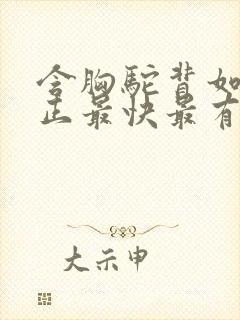 含胸驼背如
正最快最有
大示申